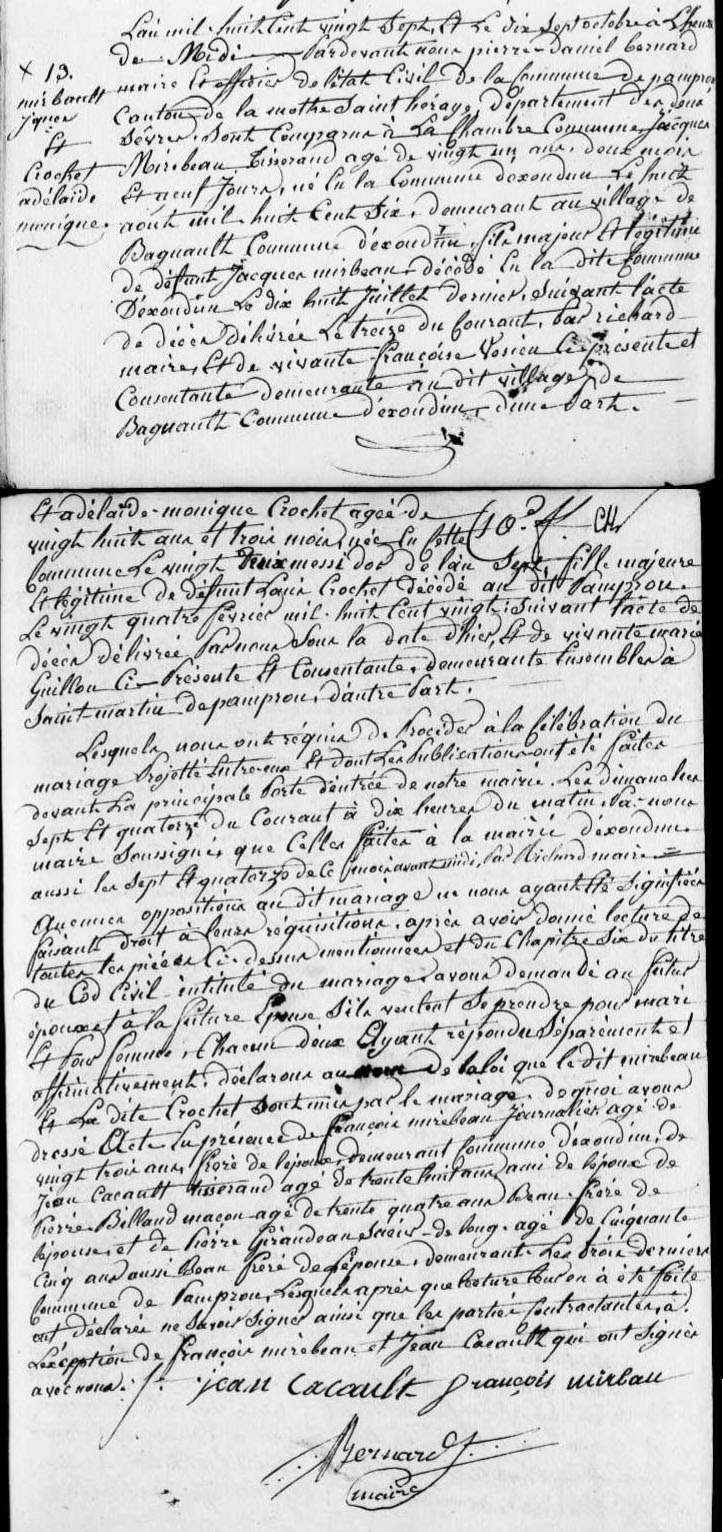 L'an mil-huit Cent vingt Sept, Et Le dix Sept octobre à L'heure
de Midi Pardevant nous pierre-Daniel bernard
maire Et officier de l'état Civil de la Commune de pamprou
Canton de la mothe Saint héraye, département des deux
Sèvres. Sont Comparus à La Chambre Commune, Jacques
Mirebeau Tisserand agé de vingt un ans, deux mois
Et neuf Jours, né En la Commune d'exoudun Le huit
aout mil-huit Cent Six, demeurant au village de
Bagnault Commune d'exoudun, fils majeur Et légitime
de défunt Jacques mirbeau, décédé En la dite Commune
D'exoudun Le dix huit Juillet dernier, suivant l'acte
de décès délivrée Le treize du Courant, Par richard
maire, Et de vivante françoise Ci présente et
Consentante demeurante au dit village de
Bagnault Commune d'exoudun, d'une Part.
X 13.
mirbault
jques
Et
Crochet
adélaïde
monique.
Et adélaïde-monique Crochet agée de
vingt huit ans et trois mois, née En cette
Commune Le vingt messidor de l'an Sept, fille majeure
Et légitime de défunt Louis Crochet Décédé au dit Pamprou
Le vingt quatre février mil-huit Cent vingt, suivant l'acte de
décès délivrée Par nous sous la date d'hier, Et de vivante marie
Guillon Ci-Présente Et Consentante, demeurante Ensembles à
Saint-martin de pamprou, d'autre Part.
10e f.
Lesquels nous ont réquis de Procéder à la Célébration du
mariage Projetté Entre eux Et dont Les Publications ont été faites
devant La principale Porte d'entrée de notre mairie, Les dimanches
Sept Et quatorze du Courant à dix heures du matin, Par nous
maire Soussigné, que Celles faites à la mairie d'exoudun
aussi les Sept Et quatorze de Ce mois avant midi, Par Richard maire
Aucunes oppositions au dit mariage ne nous ayant Eté Signifiées
faisant droit à leurs réquisitions, après avoir donné lecture de
toutes les pièces Ci-dessus mentionnées et du Chapitre Six du titre
du Cod Civil intitulé du mariage, avons demandé au futur
époux et à la future Epouse S'ils veulent Se prendre pour mari
Et Pour femme, Chacun d'eux Ayant répondu Séparément et
affirmativement, déclarons au nom de la loi que le dit mirebeau
Et La dite Crochet Sont unis par le mariage. de quoi avons
dressé Acte En présence de françois mirebeau Journalier, agé de
vingt trois ans, frère de l'époux, demeurant Commune d'exoudun, de
Jean Cacault tisserand agé de trente huit ans, ami de l'époux de
Pierre Billaud maçon agé de trente quatre ans Beau-frère de
l'épouse, et de Pierre Girandeau Scieur-de long, agé de Cinquante
Cinq ans aussi Beau frère de l'épouse, demeurant Les trois derniers
Commune de Pamprou, Lesquels après que lecture leur en à été faite
ont déclarés ne Savoir Signer ainsi que les parties Contractantes, à
L'éxception de françois mirebeau et Jean Cacault qui ont Signés
avec nous.
jean Cacault françois mirbau
Bernard
maire